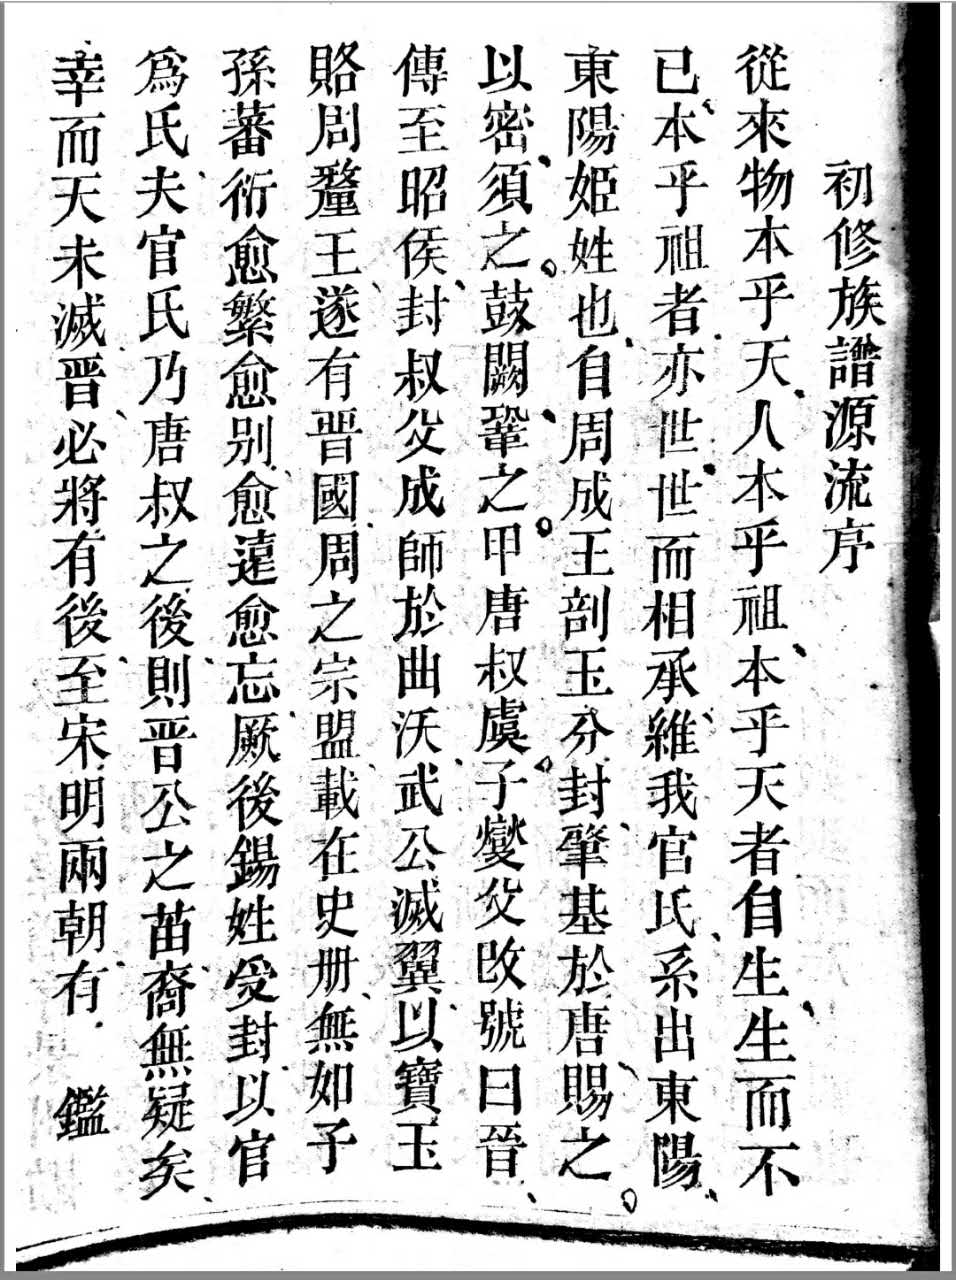 初修族譜源流序
從來物本乎天人本乎祖本乎天者自生生而不
已本乎祖者亦世世而相承維我官氏系出東陽
東陽姬姓也自周成王剖玉分封肇基於唐賜之
以密須之鼓闕鞏之甲唐叔虞子燮父改號曰晉
傳至昭侯封叔父成師於曲沃武公滅翼以寶玉
賂周釐王遂有晋國周之宗盟載在史册無如子
孫蕃衍愈繁愈別愈遠愈忘厥後錫姓受封以官
爲氏夫官氏乃唐叔之後則晋公之苗裔無疑矣
幸而天未滅晋必將有後至宋明兩朝有 鑑